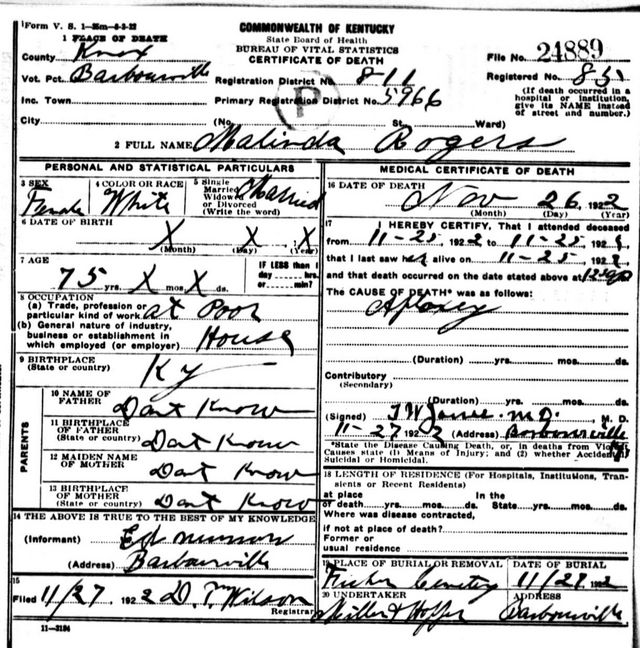 Form V. S. 1-35m-6-3-22
COMMONWEALTH OF KENTUCKY
State Board of Health
BUREAU OF VITAL STATISTICS
CERTIFICATE OF DEATH
1 PLACE OF DEATH
County Knox
File No. 24889
Vot. Pct. Barbourville
Registration District No. 811
Registered No. 835
Inc. Town
Primary Registration District No. 5966
P
(If death occurred in a hospital or institution, give its NAME instead of street and number.)
City (No. St. Ward)
2 FULL NAME Malinda Rogers
PERSONAL AND STATISTICAL PARTICULARS
3 SEX Female
4 COLOR OR RACE White
5 Single Married Widowed or Divorced (Write the word) Married
6 DATE OF BIRTH
X X X
(Month) (Day) (Year)
7 AGE
75 yrs. X mos. X ds.
IF LESS than 1 day hrs. or min.?
8 OCCUPATION
(a) Trade, profession or particular kind of work at Poor
(b) General nature of industry, business or establishment in which employed (or employer) House
9 BIRTHPLACE
(State or country) Ky
PARENTS
10 NAME OF FATHER Dant Know
11 BIRTHPLACE OF FATHER (State or country) Dant Know
12 MAIDEN NAME OF MOTHER Dant Know
13 BIRTHPLACE OF MOTHER (State or country) Dant Know
14 THE ABOVE IS TRUE TO THE BEST OF MY KNOWLEDGE
(Informant) Ed
(Address) Barbourville
15
Filed 11/27 1922 D. T. Wilson
Registrar
11-3184
MEDICAL CERTIFICATE OF DEATH
16 DATE OF DEATH
Nov 26 1922
(Month) (Day) (Year)
17 I HEREBY CERTIFY, That I attended deceased
from 11-25 1922 to 11-25 192
that I last saw her alive on 11-25 192
and that death occurred on the date stated above at
The CAUSE OF DEATH* was as follows:
Aploxey
(Duration) yrs. mos. ds.
Contributory
(Secondary)
(Duration) yrs. mos. ds.
(Signed) M.D. M. D.
11-27 1922 (Address) Barbourville Ky
*State the Disease Causing Death, or, in deaths from Violent Causes state (1) Means of Injury; and (2) whether Accidental, Suicidal or Homicidal.
18 LENGTH OF RESIDENCE (For Hospitals, Institutions, Transients or Recent Residents)
at place of death yrs. mos. ds. In the State yrs. mos. ds.
Where was disease contracted,
if not at place of death?
Former or
usual residence
19 PLACE OF BURIAL OR REMOVAL
Cemetery
DATE OF BURIAL
11/27 1922
20 UNDERTAKER
Miller &
ADDRESS
Barbourville